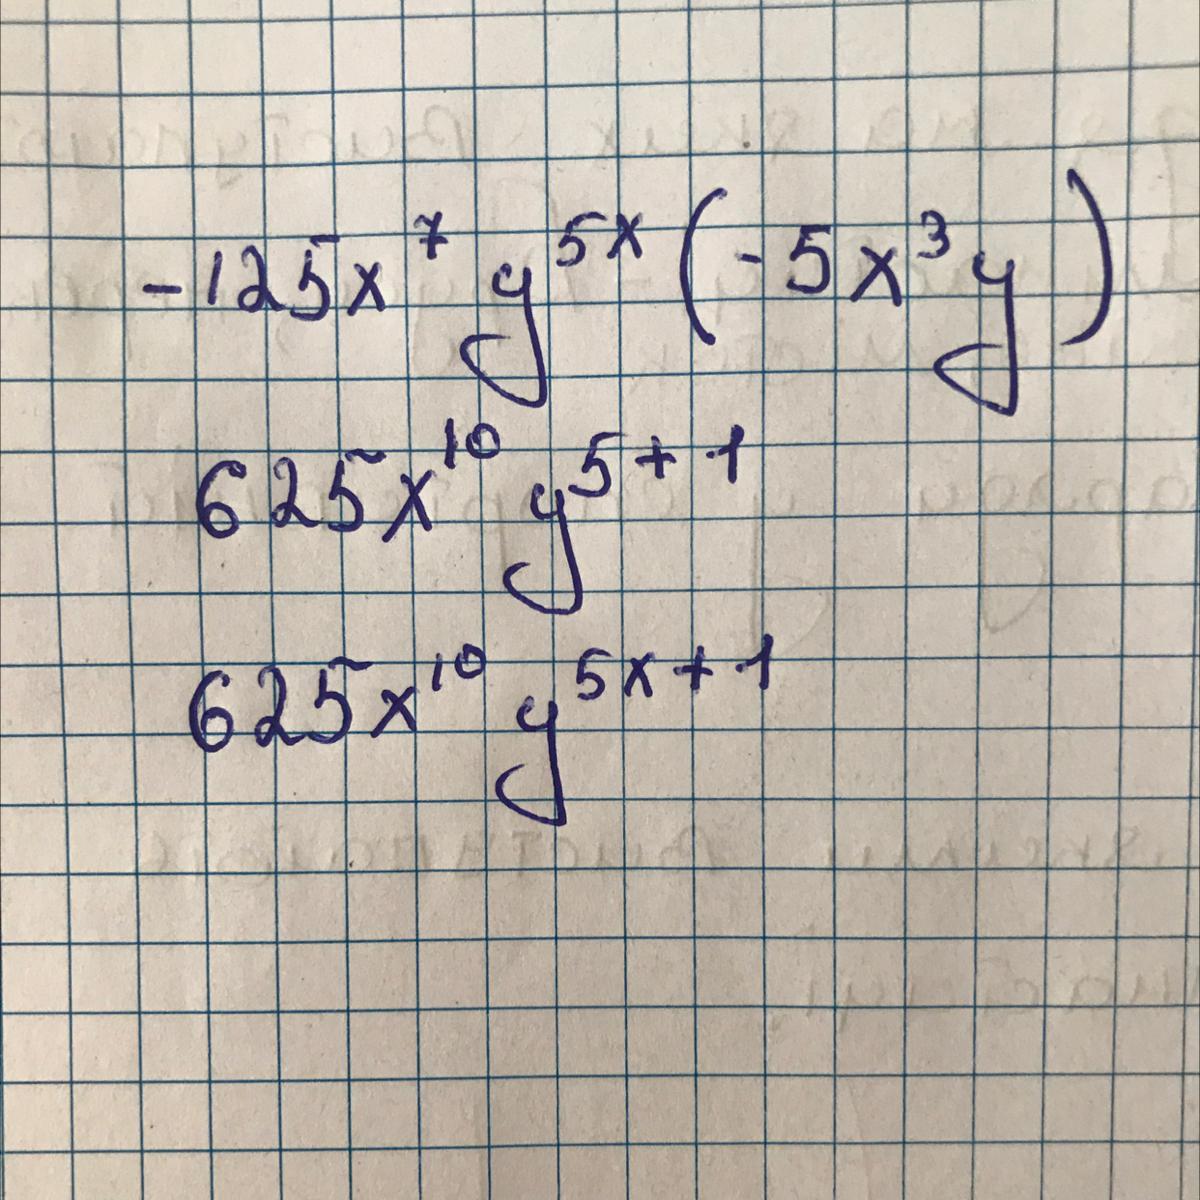 -125x⁷ y⁵ˣ (-5x³y)
625x¹⁰ y⁵⁺¹
625x¹⁰ y⁵ˣ⁺¹